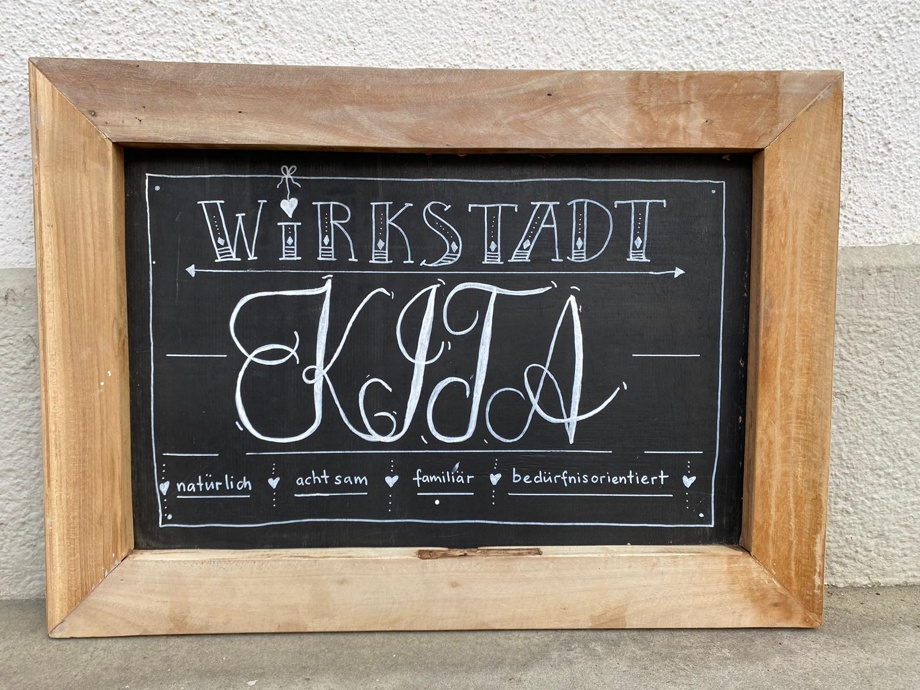 WiRKSTADT
KITA
natürlich achtsam familiär bedürfnisorientiert